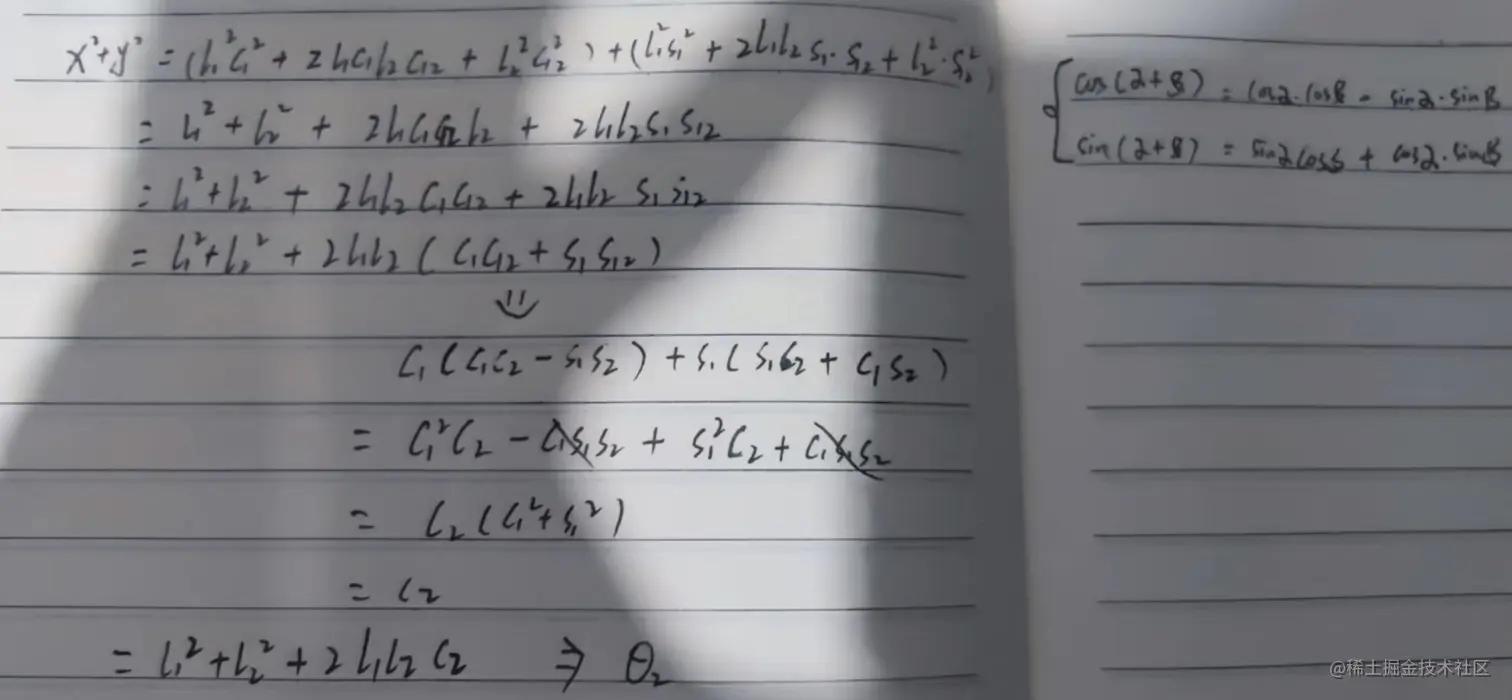 x²+y² = (l₁²c₁² + 2l₁c₁l₂c₁₂ + l₂²c₁₂²) + (l₁²s₁² + 2l₁l₂s₁·s₁₂ + l₂²·s₁₂²)
= l₁² + l₂² + 2l₁c₁c₁₂l₂ + 2l₁l₂s₁s₁₂
= l₁² + l₂² + 2l₁l₂c₁c₁₂ + 2l₁l₂ s₁s₁₂
= l₁² + l₂² + 2l₁l₂(c₁c₁₂ + s₁s₁₂)
c₁(c₁c₂ - s₁s₂) + s₁(s₁c₂ + c₁s₂)
= c₁²c₂ - c₁s₁s₂ + s₁²c₂ + c₁s₁s₂
= c₂(c₁² + s₁²)
= c₂
= l₁² + l₂² + 2l₁l₂c₂ ⇒ θ₂
cos(α+β) = cosα·cosβ - sinα·sinβ
sin(α+β) = sinαcosβ + cosα·sinβ
@稀土掘金技术社区